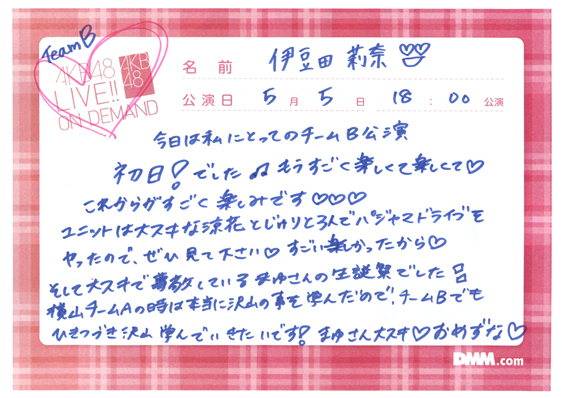 TeamB
AKB48
LIVE!!
ON DEMAND
AKB
48
名前 伊豆田 莉奈
公演日 5月5日 18:00 公演
今日は私にとってのチームB公演
初日!でした♫もうすごく楽しくて楽しくて♡
これからがすごく楽しみです♡♡♡
ユニットは大スキな涼花とじゅりとろんでパジャマドライブを
やったので、ぜひ見て下さい♡すごい楽しかったから♡
そして大スキで尊敬しているまゆさんの生誕祭でした
横山チームAの時は本当に沢山の事を学んだので、チームBでも
ひきつづき沢山学んでいきたいです!まゆさん大スキ♡おめずな♡
DMM.com